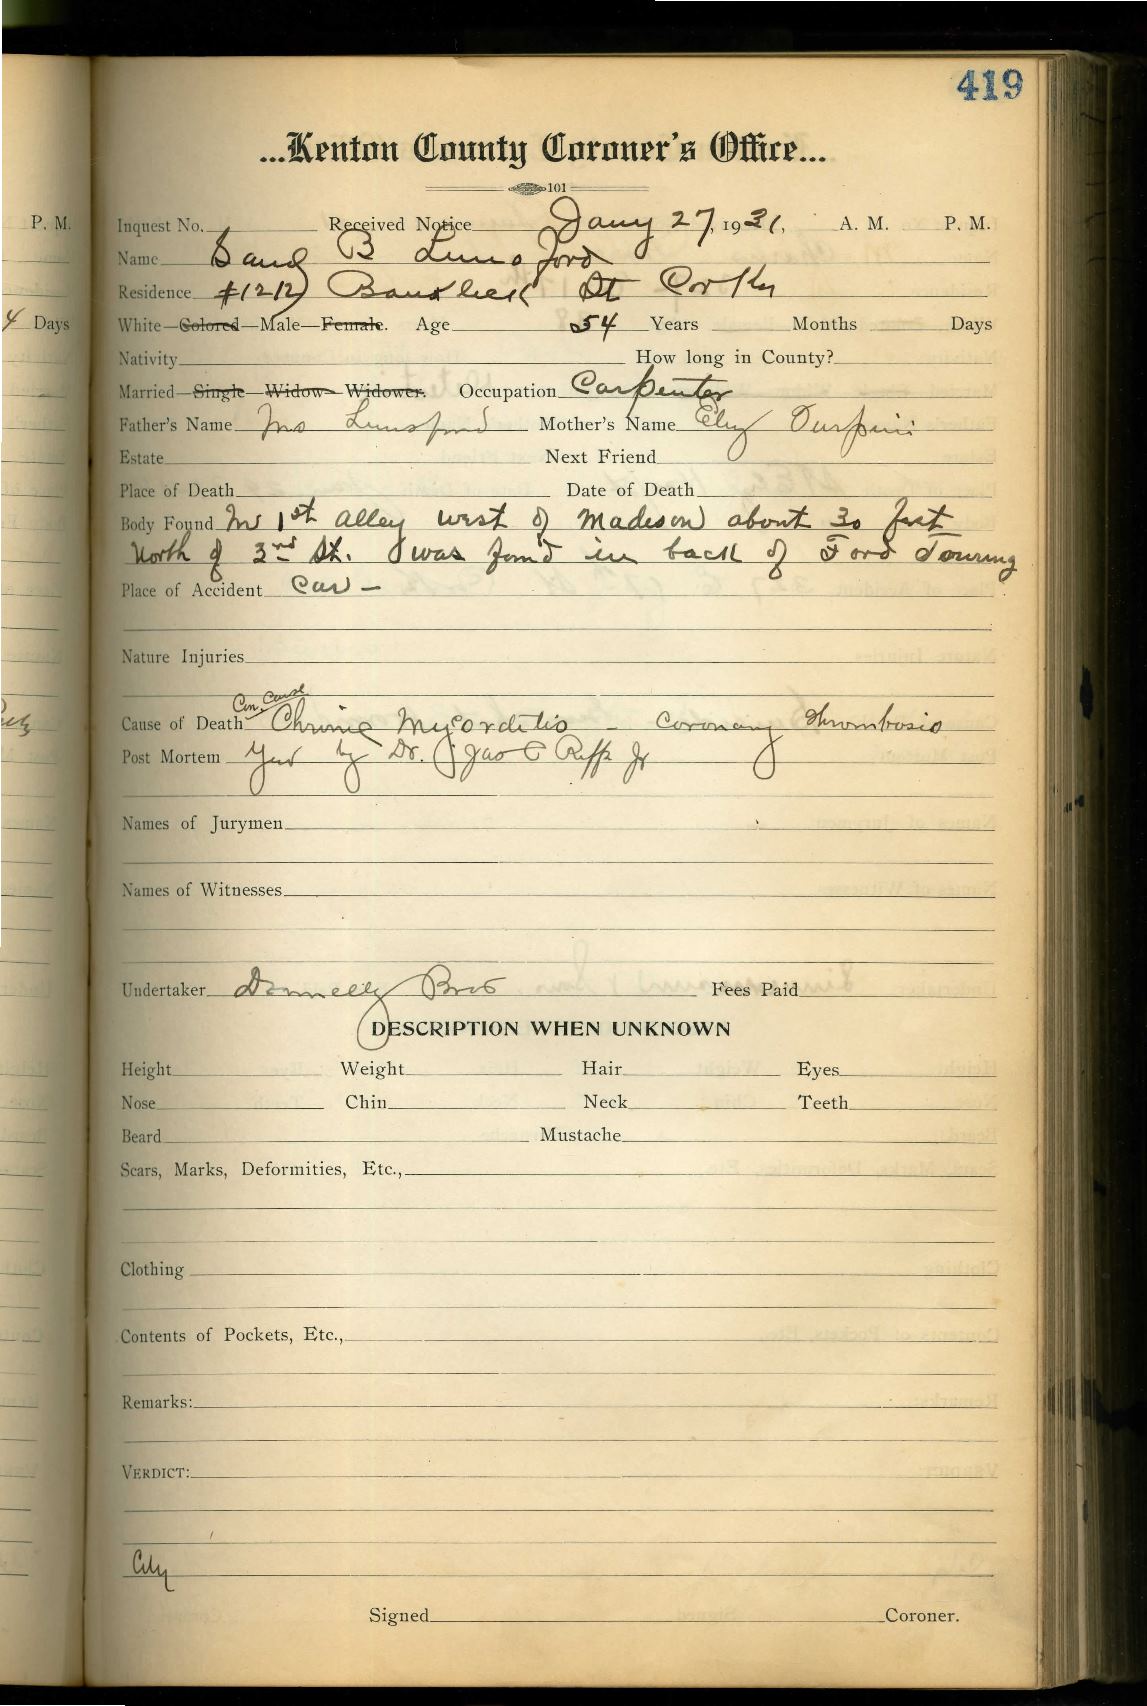 419
...Kenton County Coroner's Office...
101
P. M.
Inquest No. Received Notice Jany 27, 1931, A. M. P. M.
Name B Lunsford
Residence #1212 St Cov Ky
4 Days
White—Colored—Male—Female. Age 54 Years Months Days
Nativity How long in County?
Married—Single—Widow—Widower. Occupation Carpenter
Father's Name Jno Lunsford Mother's Name Eliz
Estate Next Friend
Place of Death Date of Death
Body Found In 1st alley west of Madison about 30 feet
North of 3rd St. was found in back of Ford Touring
Place of Accident Car —
Nature Injuries
Con. Cause
Cause of Death Chronic Myocorditis — Coronary Thrombosis
Post Mortem Yes by Dr. Jas C Riffe Jr
Names of Jurymen
Names of Witnesses
Undertaker Donnelly Bros Fees Paid
DESCRIPTION WHEN UNKNOWN
Height Weight Hair Eyes
Nose Chin Neck Teeth
Beard Mustache
Scars, Marks, Deformities, Etc.,
Clothing
Contents of Pockets, Etc.,
Remarks:
VERDICT:
City
Signed Coroner.